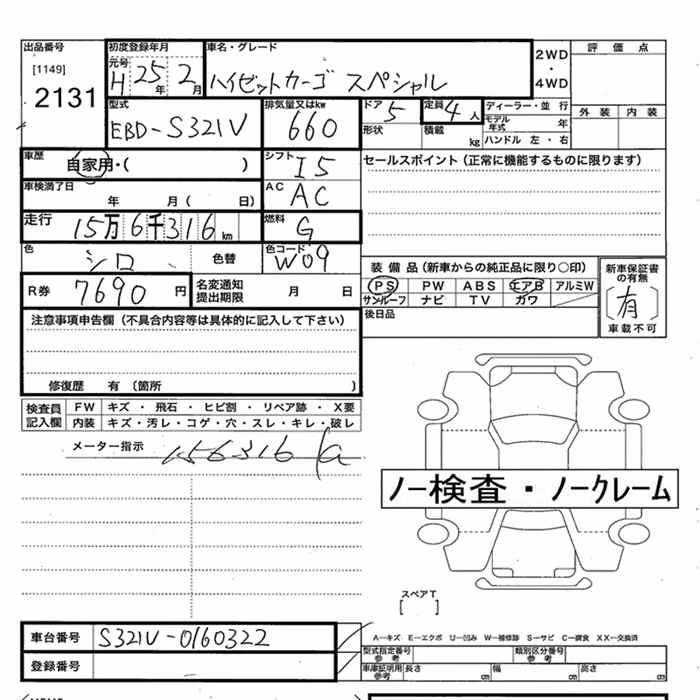 出品番号 初度登録年月 車名・グレード 2WD ・ 4WD 評価点
[1149] 元号 H 25年 2月 ハイゼットカーゴ スペシャル
2131 外装 内装
型式 排気量又はkw ドア 5 定員 4人 ディーラー・並行
EBD-S321V 660 形状 積載 kg モデル年式 年
ハンドル 左・右
車歴 自家用・( ) シフト I5 セールスポイント(正常に機能するものに限ります)
車検満了日 年 月( 日) AC AC
走行 15万6千316km 燃料 G
色 シロ 色替 色コード W09 装備品(新車からの純正品に限り○印) 新車保証書の有無
R券 7690円 名変通知提出期限 月 日 PS PW ABS エアB アルミW [有]
サンルーフ ナビ TV カワ 車載不可
注意事項申告欄(不具合内容等は具体的に記入して下さい) 後日品
修復歴 有〔箇所 )
検査員記入欄 FW キズ・飛石・ヒビ割・リペア跡・X要
内装 キズ・汚レ・コゲ・穴・スレ・キレ・破レ
メーター指示 156316
ノー検査・ノークレーム
スペアT
[ ]
車台番号 S321V-0160322 A―キズ E―エクボ U―凹み W―補修跡 S―サビ C―腐食 XX―交換済
登録番号 型式指定番号 参考 類別区分番号 参考
車庫証明用 参考 長さ 幅 高さ